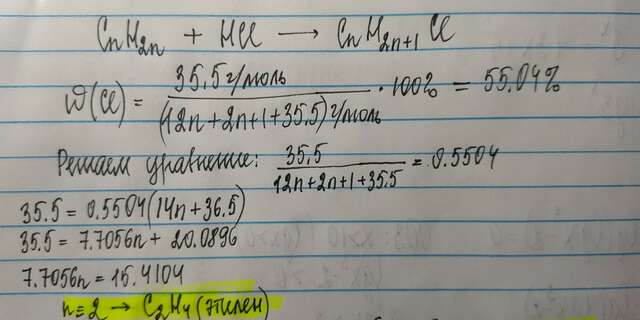 CnH2n + HCl → CnH2n+1Cl
W(Cl) = 35,5 г/моль / (12n+2n+1+35,5) г/моль · 100% = 55.04%
Решаем уравнение: 35.5 / 12n+2n+1+35.5 = 0.5504
35.5 = 0.5504(14n+36.5)
35.5 = 7.7056n + 20.0896
7.7056n = 15.4104
n = 2 → C2H4 (этилен)